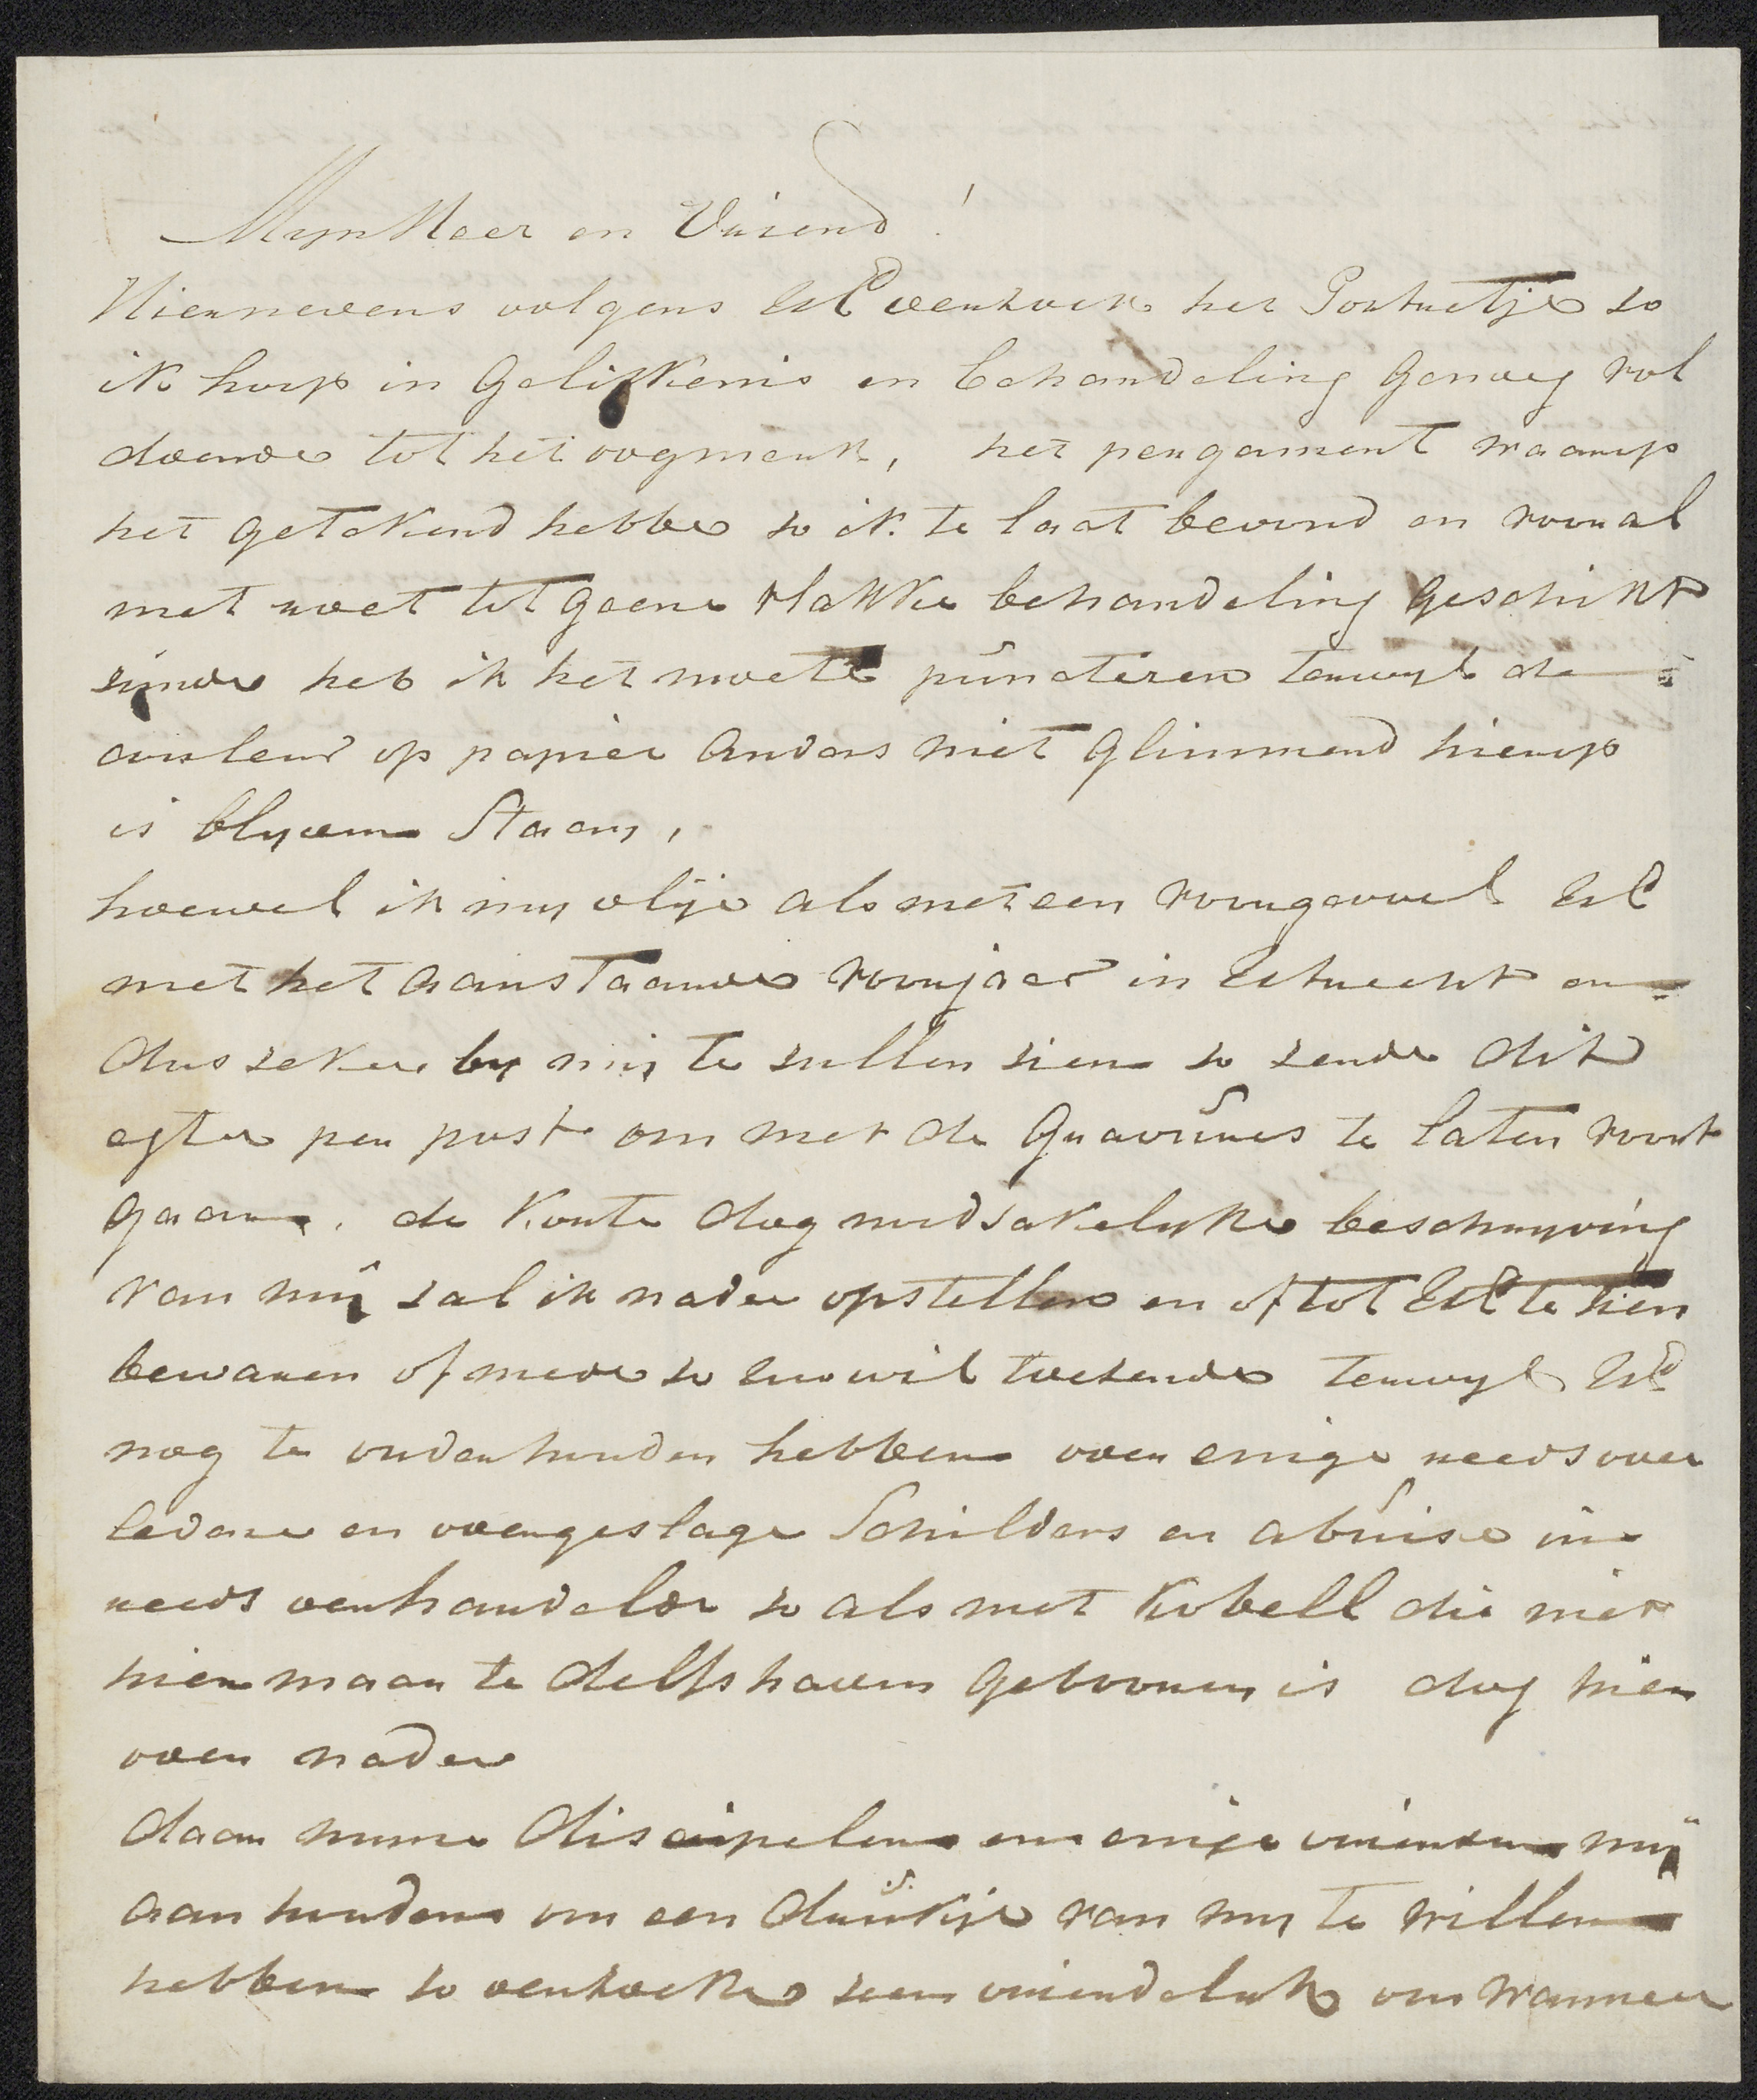 Mijn Heer en Vriend !
Hiernevens volgens UEd versoek het Portretje so
ik hoop in Gelijkkenis en behandeling Genoeg vol
doende tot het oogmerk, het pergament waarop
het getekend hebbe so ik te laat bevond en vooral
met roet tot Geene vlakke behandeling Geschikt
zijnde heb ik het moete puncteren terwyl de
couleur op papier anders niet glimmend hierop
is blyven Staan,
hoewel ik my vlije als met een voorgevoel UEd
met het aanstaande voorjaar in Utrecht en
dus seker by mij te sullen sien so zende dit
egter per post om met de Gravures te laten voort
gaan. de Korte dog noodsakelyke beschryving
van mij sal ik nader opstellen en of tot UEd te sien
bewaren of mede so UEd wil toesende terwyl UEd
nog te onderhouden hebben over enige reeds over
ledene en overgeslage Schilders en abuise in
reeds verhandelde so als met Kobell die niet
hier maar te delfshaven geboren is dog hier
over nader
daar myne discipelen en enige vrienden mij
aan houden om een drukje van my te willen
hebben so versoeke seer vriendelyk om wanneer